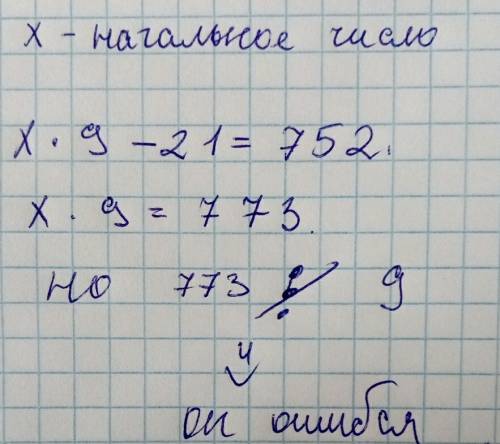 x - начальное число
x · 9 - 21 = 752.
x · 9 = 773.
но 773 ⋮̸ 9
ч
он ошибся